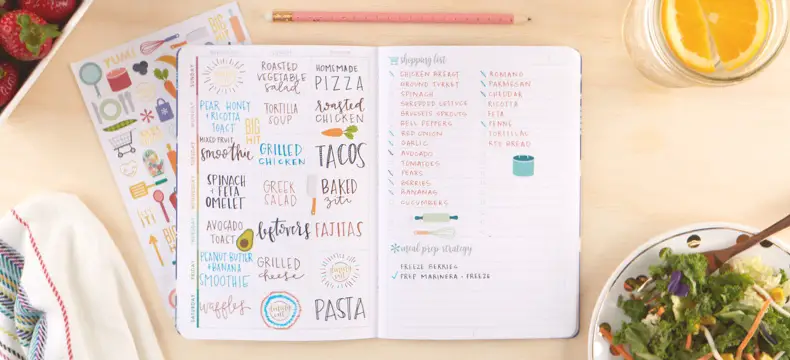 YUM!
SUNDAY
ROASTED
VEGETABLE
Salad
HOMEMADE
PIZZA
MONDAY
PEAR HONEY
+ RICOTTA
TOAST
BIG
HIT
TORTILLA
SOUP
roasted
CHICKEN
TUESDAY
MIXED FRUIT
Smoothie
GRILLED
CHICKEN
TACOS
WEDNESDAY
SPINACH
+ FETA
OMELET
GREEK
SALAD
BAKED
ziti
THURSDAY
AVOCADO
TOAST
leftovers
FAJITAS
FRIDAY
PEANUT BUTTER
+ BANANA
SMOOTHIE
GRILLED
cheese
SATURDAY
waffles
PASTA
shopping list
CHICKEN BREAST
GROUND TURKEY
SPINACH
SHREDDED LETTUCE
BRUSSELS SPROUTS
BELL PEPPERS
RED ONION
GARLIC
AVOCADO
TOMATOES
PEARS
BERRIES
BANANAS
CUCUMBERS
ROMANO
PARMESAN
CHEDDAR
RICOTTA
FETA
PENNE
TORTILLAS
RYE BREAD
meal prep strategy
FREEZE BERRIES
PREP MARINERA + FREEZE